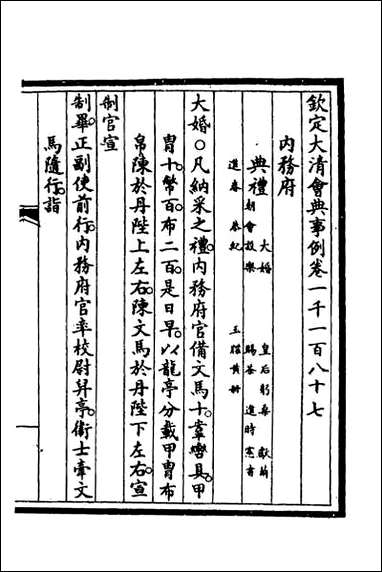 欽定大清會典事例卷一千一百八十七
內務府
典禮 大婚 皇后躬桑 獻繭
朝會設樂 賜茶 進時憲書
進春 玉牒黃冊
大婚○凡納采之禮。內務府官備文馬十。鞌轡具。甲
冑十。幣百。布二百。是日早。以龍亭分載甲冑布
帛陳於丹陛上左右。陳文馬於丹陛下左右。宣
制官宣
制畢。正副使前行。內務府官率校尉舁亭。衛士牽文
馬隨行。詣